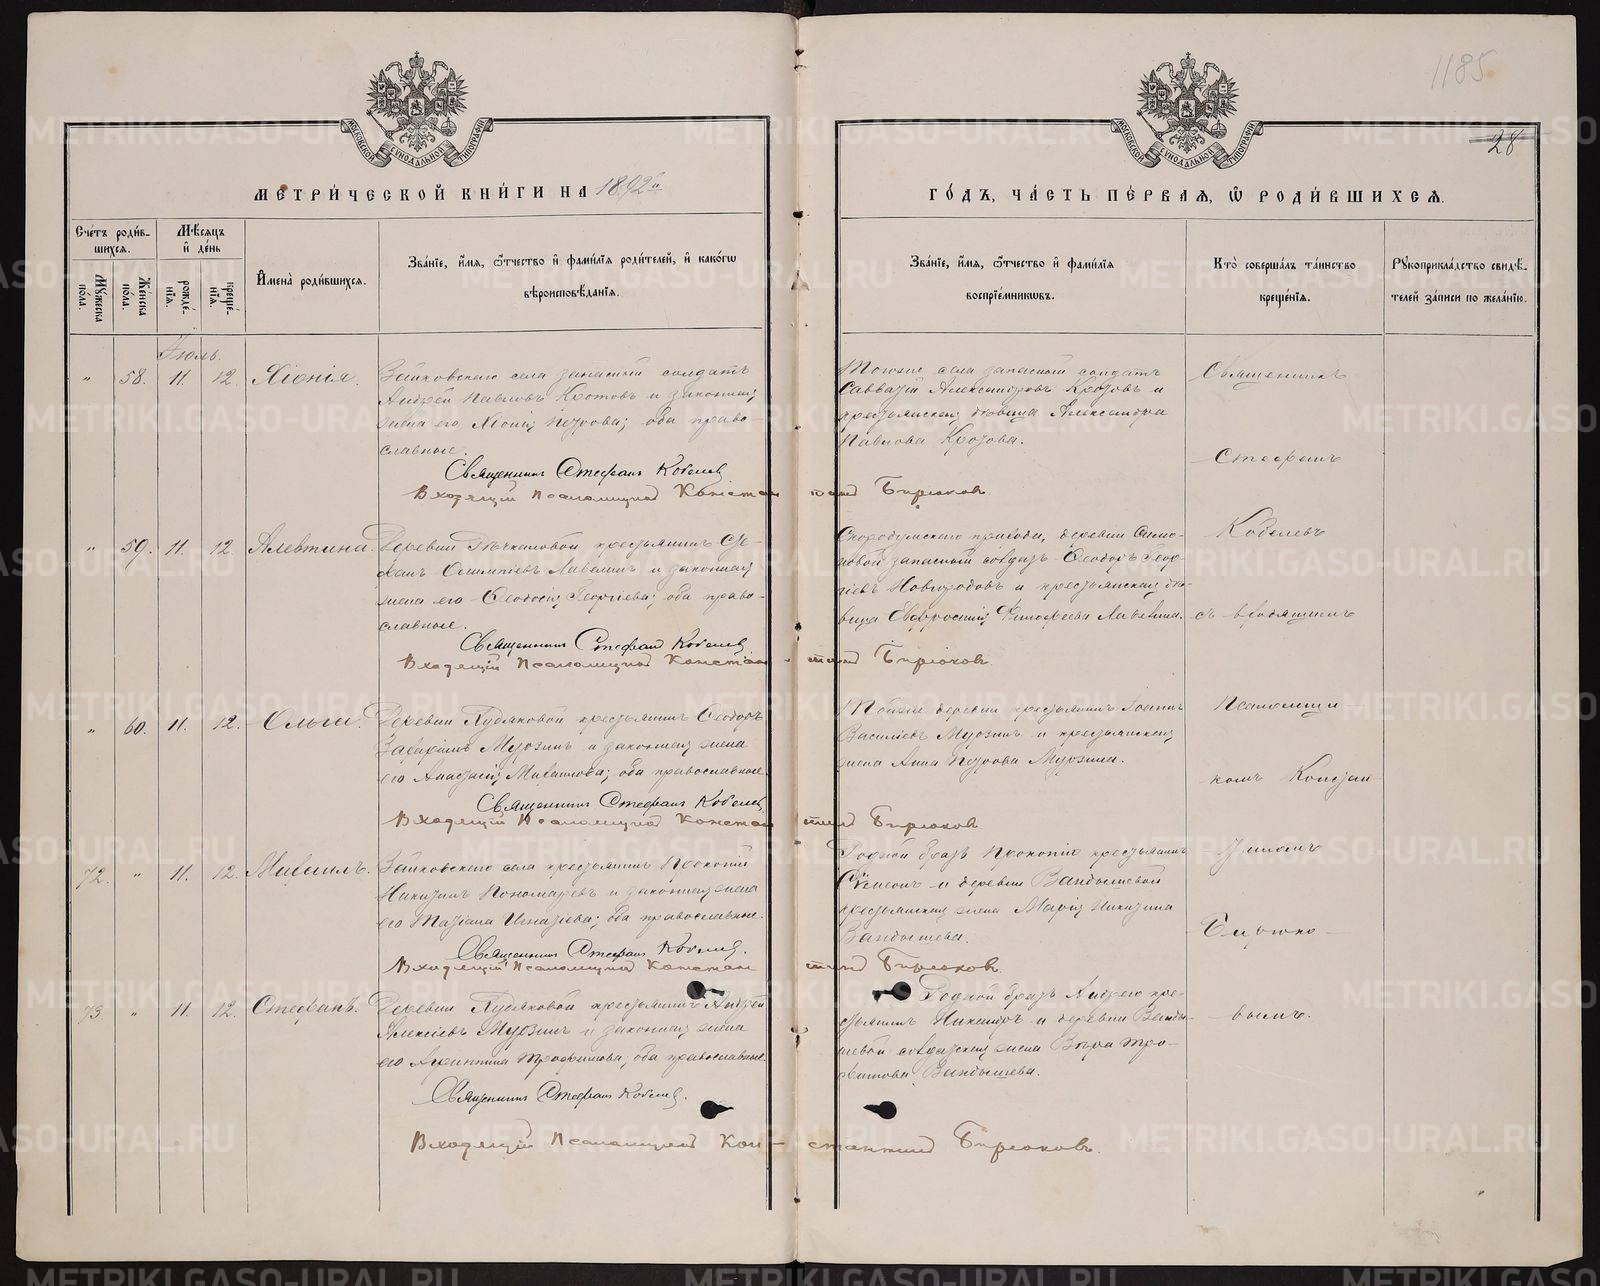 1185
28
МОСКОВСКОЙ СѴНОДАЛЬНОЙ ТИПОГРАФІИ
МОСКОВСКОЙ СѴНОДАЛЬНОЙ ТИПОГРАФІИ
МЕТРИ́ЧЕСКОЙ КНИ́ГИ НА 1892й
ГО́ДЪ, ЧА́СТЬ ПЕ́РВАЯ, Ѽ РОДИ́ВШИХСЯ.
Сче́тъ роди́в-
шихся.
Мѣ́сяцъ
и҆ де́нь
Му́жеска по́ла.
Же́нска по́ла.
рожде́-нїя.
креще́-нїя.
И҆мена̀ роди́вшихся.
Зва́нїе, и҆́мя, ѻ҆́тчество и҆ фами́лїя роди́телей, и҆ како́гѡ
вѣроисповѣ́данїя.
Зва́нїе, и҆́мя, ѻ҆́тчество и҆ фами́лїя
воспрїе́мникѡвъ.
Кто̀ соверша́лъ та́инство
креще́нїя.
Рꙋкоприкла́дство свидѣ́-
телей за́писи по жела́нїю.
Іюль.
" 58. 11. 12. Хіонія.
Зайковскаго села запасный солдатъ
Андрей Павловъ Кротовъ и законная
жена его Хіонія Петрова; оба право-
славные.
Священникъ Стефанъ Кобелевъ
Входящій Псаломщикъ Констан тинъ Бирюковъ
Тогоже села запасный солдатъ
Савватій Александровъ Кротовъ и
крестьянская дѣвица Александра
Павлова Кротова.
Священникъ
Стефанъ
" 59. 11. 12. Алевтина.
Деревни крестьянинъ Сте-
фанъ Олимпіевъ и законная
жена его Ѳеодосія Георгіева; оба право-
славные.
Священникъ Стефанъ Кобелевъ
Входящій Псаломщикъ Констан тинъ Бирюковъ
Скородумскаго прихода, деревни Симо-
новой запасный солдатъ Ѳеодоръ Геор-
гіевъ Новгородовъ и крестьянская дѣ-
вица Евфросинія
Кобелевъ
съ входящимъ
" 60. 11. 12. Ольга.
Деревни крестьянинъ Ѳеодоръ
Мурзинъ и законная жена
его Анастасія Михаилова; оба православные.
Священникъ Стефанъ Кобелевъ
Входящій Псаломщикъ Констан тинъ Бирюковъ
Тойже деревни крестьянинъ Іоаннъ
Василіевъ Мурзинъ и крестьянская
жена Анна Петрова Мурзина.
Псаломщи-
комъ Констан-
72. " 11. 12. Михаилъ.
Зайковскаго села крестьянинъ Прокопій
Никитинъ Пономаревъ и законная жена
его Татіана Игнатіева; оба православные.
Священникъ Стефанъ Кобелевъ.
Входящій Псаломщикъ Констан тинъ Бирюковъ.
Родной братъ Прокопію крестьянинъ
Симеонъ и деревни Вандышевой
крестьянская жена Марія Никитина
Вандышева.
тиномъ
Бирюко-
73. " 11. 12. Стефанъ.
Деревни крестьянинъ Андрей
Алексіевъ Мурзинъ и законная жена
его Трофимова; оба православные.
Священникъ Стефанъ Кобелевъ.
Входящій Псаломщикъ Кон-стантинъ Бирюковъ.
Родной братъ Андрею кре-
стьянинъ Никаноръ и деревни Ванды-
шевой солдатская жена Вѣра Тро-
фимова Вандышева.
вымъ.
METRIKI.GASO-URAL.RU